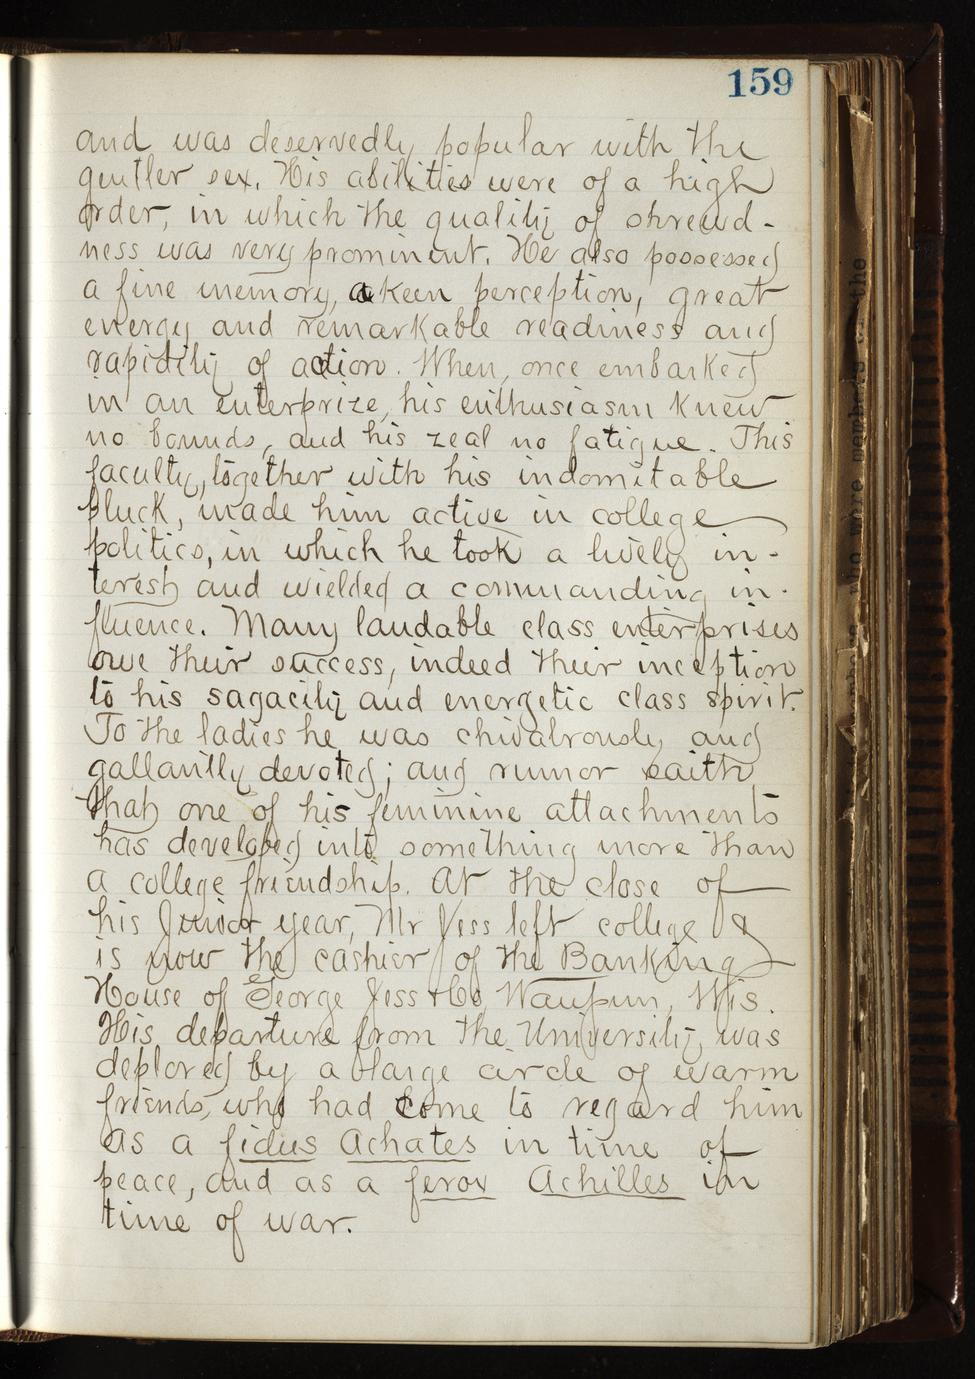 159
and was deservedly popular with the
gentler sex. His abilities were of a high
order, in which the quality of shrewd-
ness was very prominent. He also possessed
a fine memory, a keen perception, great
energy and remarkable readiness and
rapidity of action. When, once embarked
in an enterprize, his enthusiasm knew
no bounds, and his zeal no fatigue. This
faculty, together with his indomitable
pluck, made him active in college
politics, in which he took a lively in-
terest and wielded a commanding in-
fluence. Many laudable class enterprises
owe their success, indeed their inception
to his sagacity and energetic class spirit.
To the ladies he was chivalrously and
gallantly devoted; and rumor saith
that one of his feminine attachments
has developed into something more than
a college friendship. At the close of
his Junior year, Mr Jess left college &
is now the cashier of the Banking
House of George Jess & Co, Waupun, Wis.
His departure from the University was
deplored by a large circle of warm
friends, who had come to regard him
as a fidus Achates in time of
peace, and as a ferox Achilles in
time of war.
who were members in the